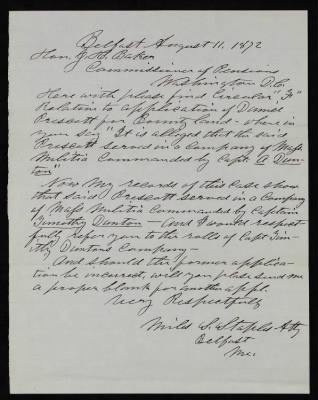 Belfast August 11. 1872
Hon. J. H. Baker
Commissioner of Pensions
Washington D.C.
Here with please find Circular "F"
Relation to application of Daniel
Prescott for Bounty land - where in
you say "It is alleged that the said
Prescott served in a Company of Mass
Militia Commanded by Capt. A Dun-
ton"
Now My records of this Case show
that said Prescott served in a Company
of Mass Militia Commanded by Captain
Timothy Dunton - and I would respect-
fully refer you to the rolls of Capt Tim-
othy Duntons Company -
And should the former applica-
tion be incorrect, will you please send me
a proper blank for another appl.
Very Respectfully
Miles S. Staples Atty
Belfast
Me.